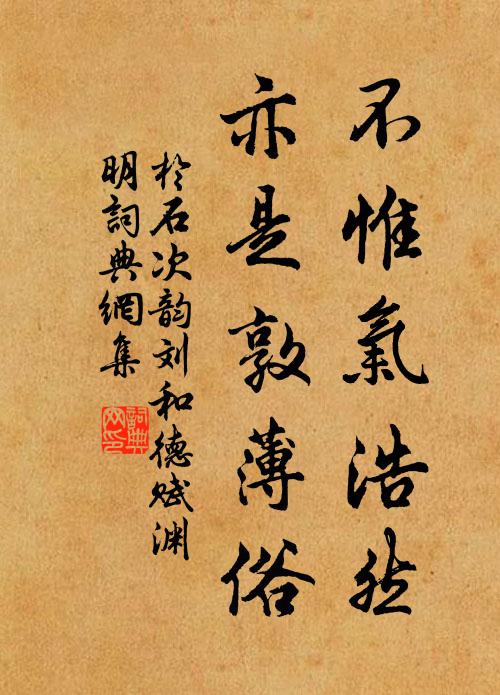 不惟氣浩然
亦是敦薄俗
於石次韵刘和德赋渊
明詞典網集
詞典網印